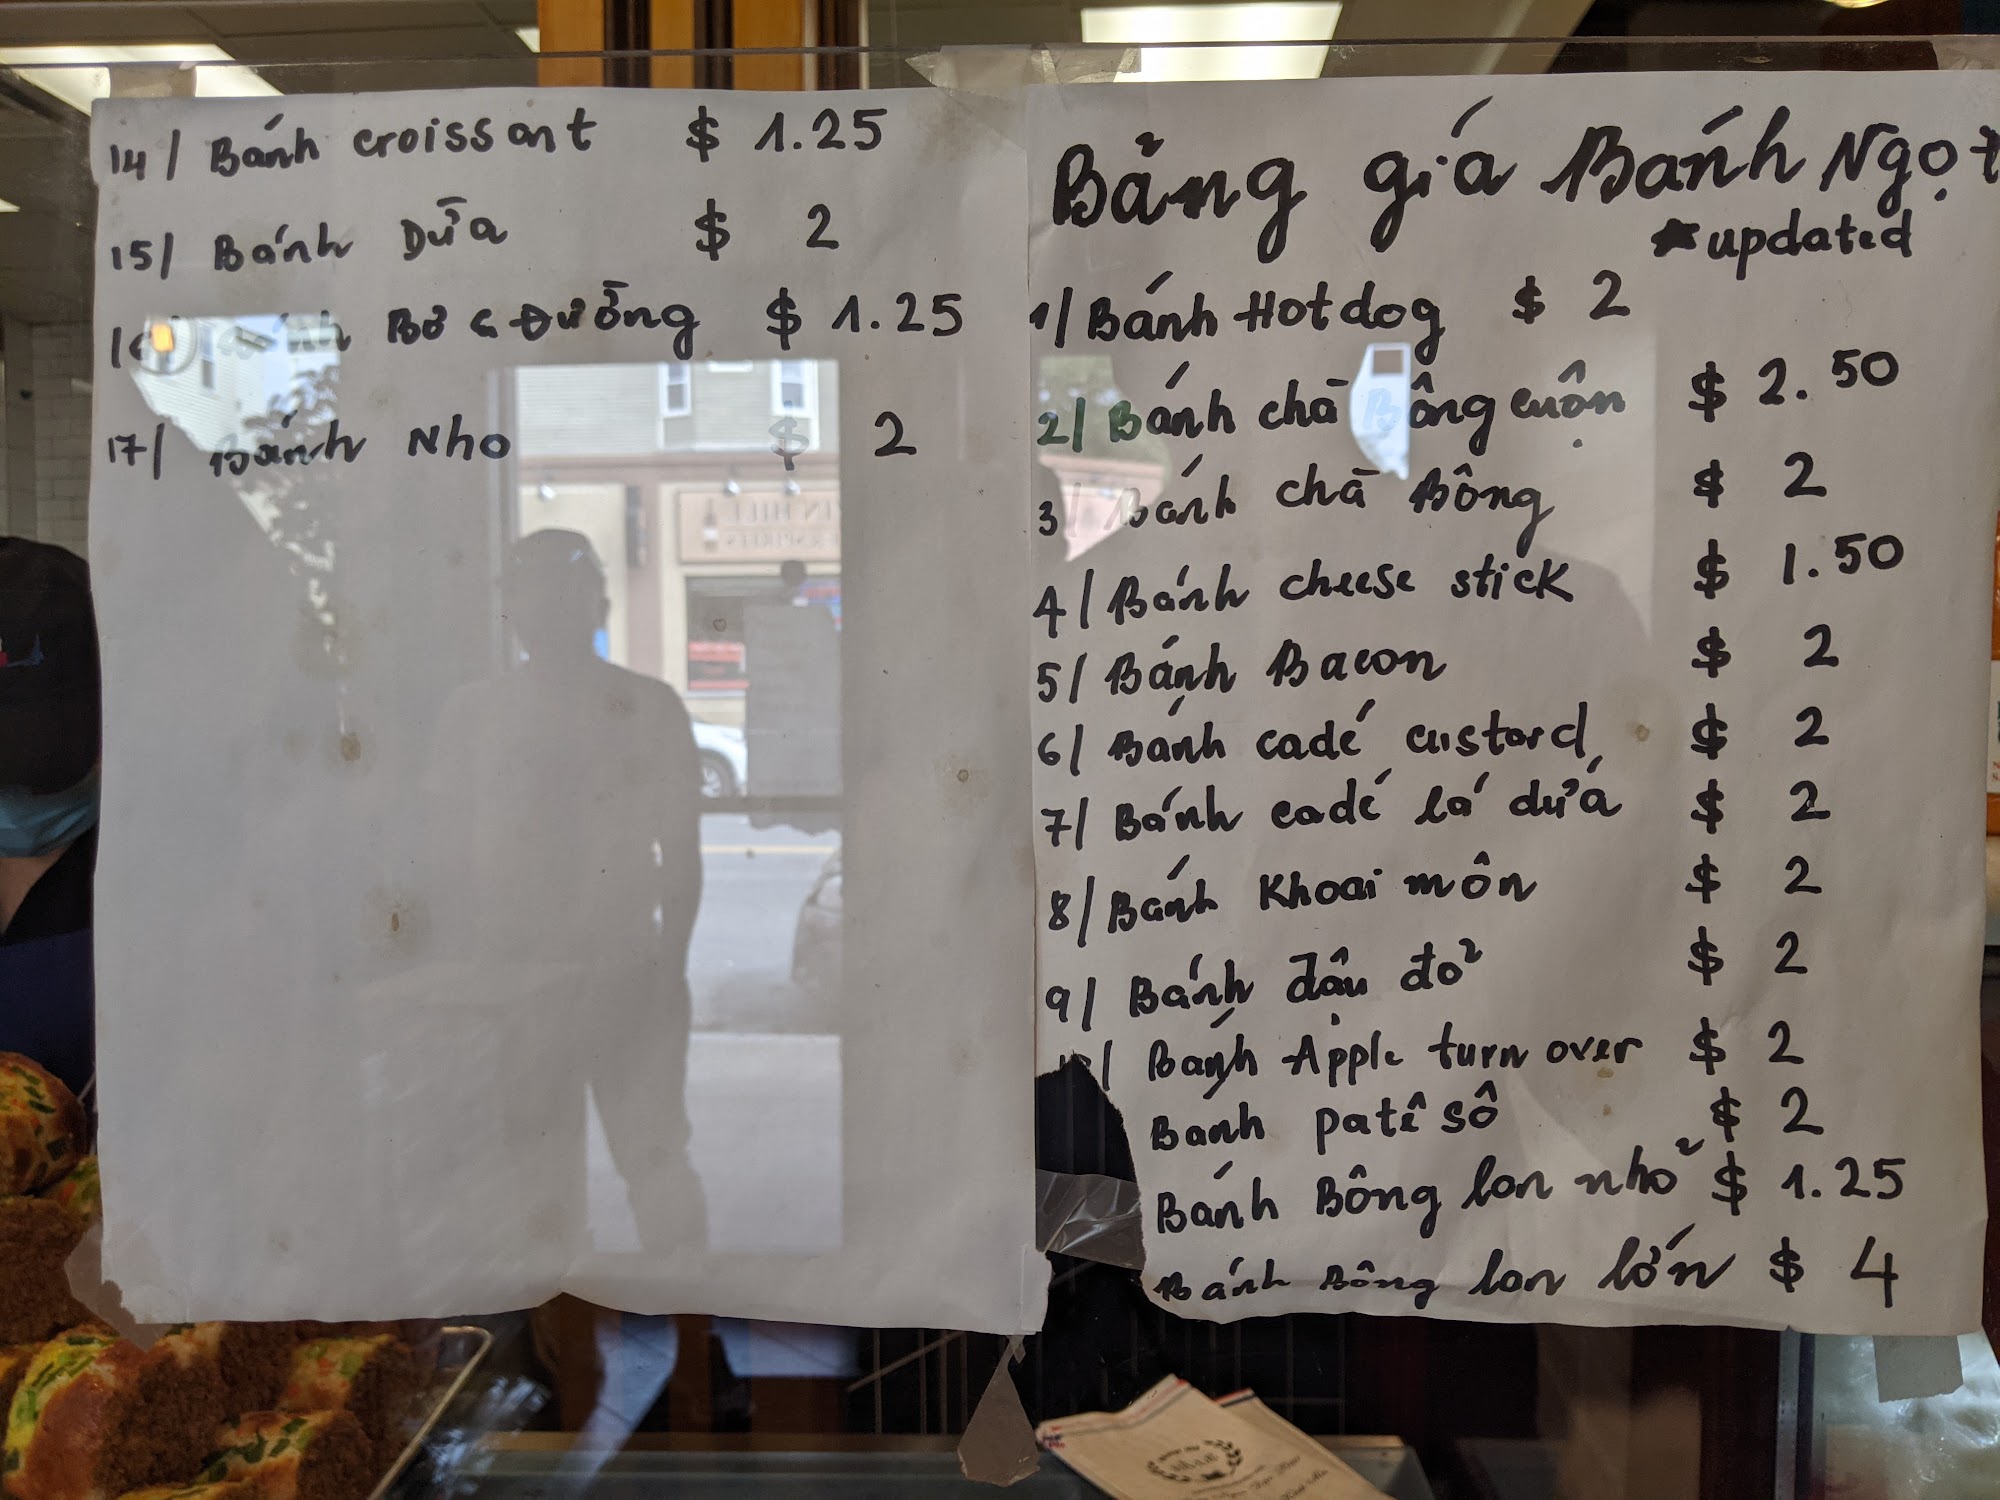 14/ Bánh croissant $ 1.25
15/ Bánh Dừa $ 2
16/ Bánh Bơ Đường $ 1.25
17/ Bánh Nho $ 2
Bảng giá Bánh Ngọt
*updated
1/ Bánh Hotdog $ 2
2/ Bánh chà Bông cuộn $ 2.50
3/ Bánh chà Bông $ 2
4/ Bánh cheese stick $ 1.50
5/ Bánh Bacon $ 2
6/ Bánh cadé custard $ 2
7/ Bánh cadé lá dứa $ 2
8/ Bánh Khoai môn $ 2
9/ Bánh đậu đỏ $ 2
10/ Bánh Apple turn over $ 2
Bánh patê sô $ 2
Bánh Bông lan nhỏ $ 1.25
Bánh Bông lan lớn $ 4